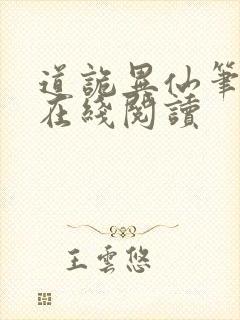 道詭異仙筆
在綫閱讀
王雲悠